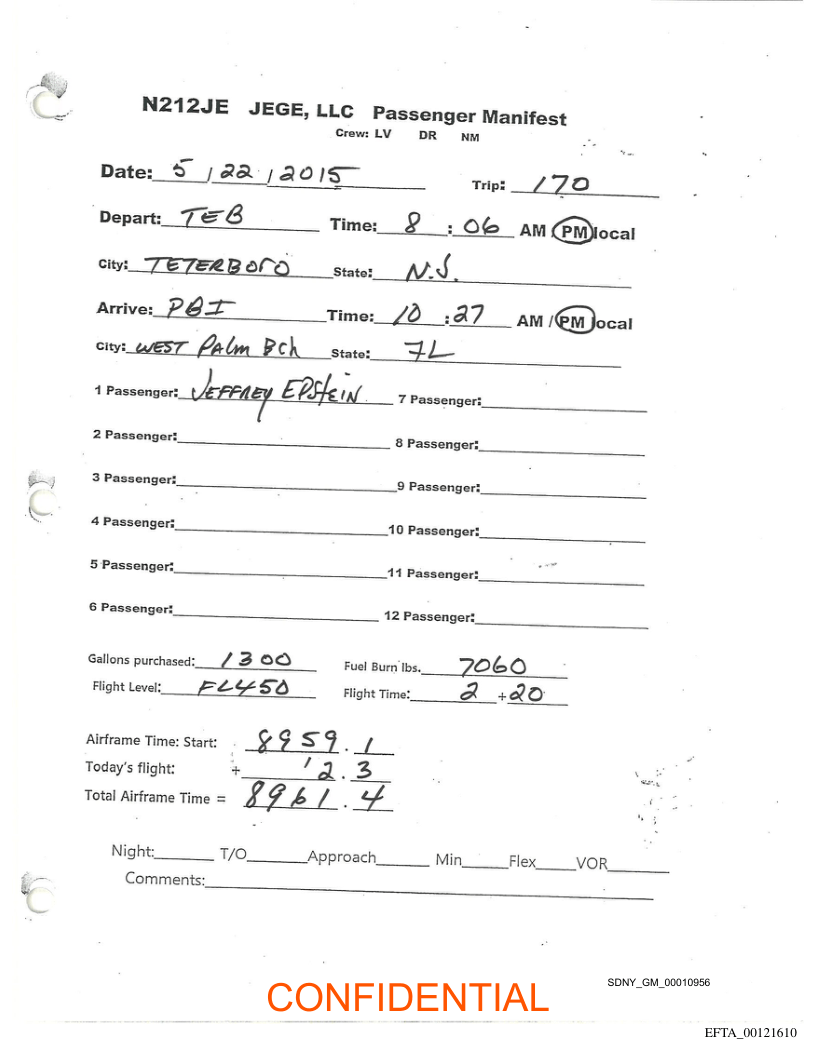 N212JE JEGE, LLC Passenger Manifest
Crew: LV DR NM
Date: 5 / 22 / 2015 Trip: 170
Depart: TEB Time: 8 : 06 AM / PM local
City: TETERBORO State: N.J.
Arrive: PBI Time: 10 : 27 AM / PM local
City: WEST PALM BCh State: FL
1 Passenger: JEFFREY EPSTEIN 7 Passenger:
2 Passenger: 8 Passenger:
3 Passenger: 9 Passenger:
4 Passenger: 10 Passenger:
5 Passenger: 11 Passenger:
6 Passenger: 12 Passenger:
Gallons purchased: 1300 Fuel Burn lbs. 7060
Flight Level: FL450 Flight Time: 2 + 20
Airframe Time: Start: 8959.1
Today's flight: + 2.3
Total Airframe Time = 8961.4
Night: T/O Approach Min Flex VOR
Comments:
CONFIDENTIAL
SDNY_GM_00010956
EFTA_00121610